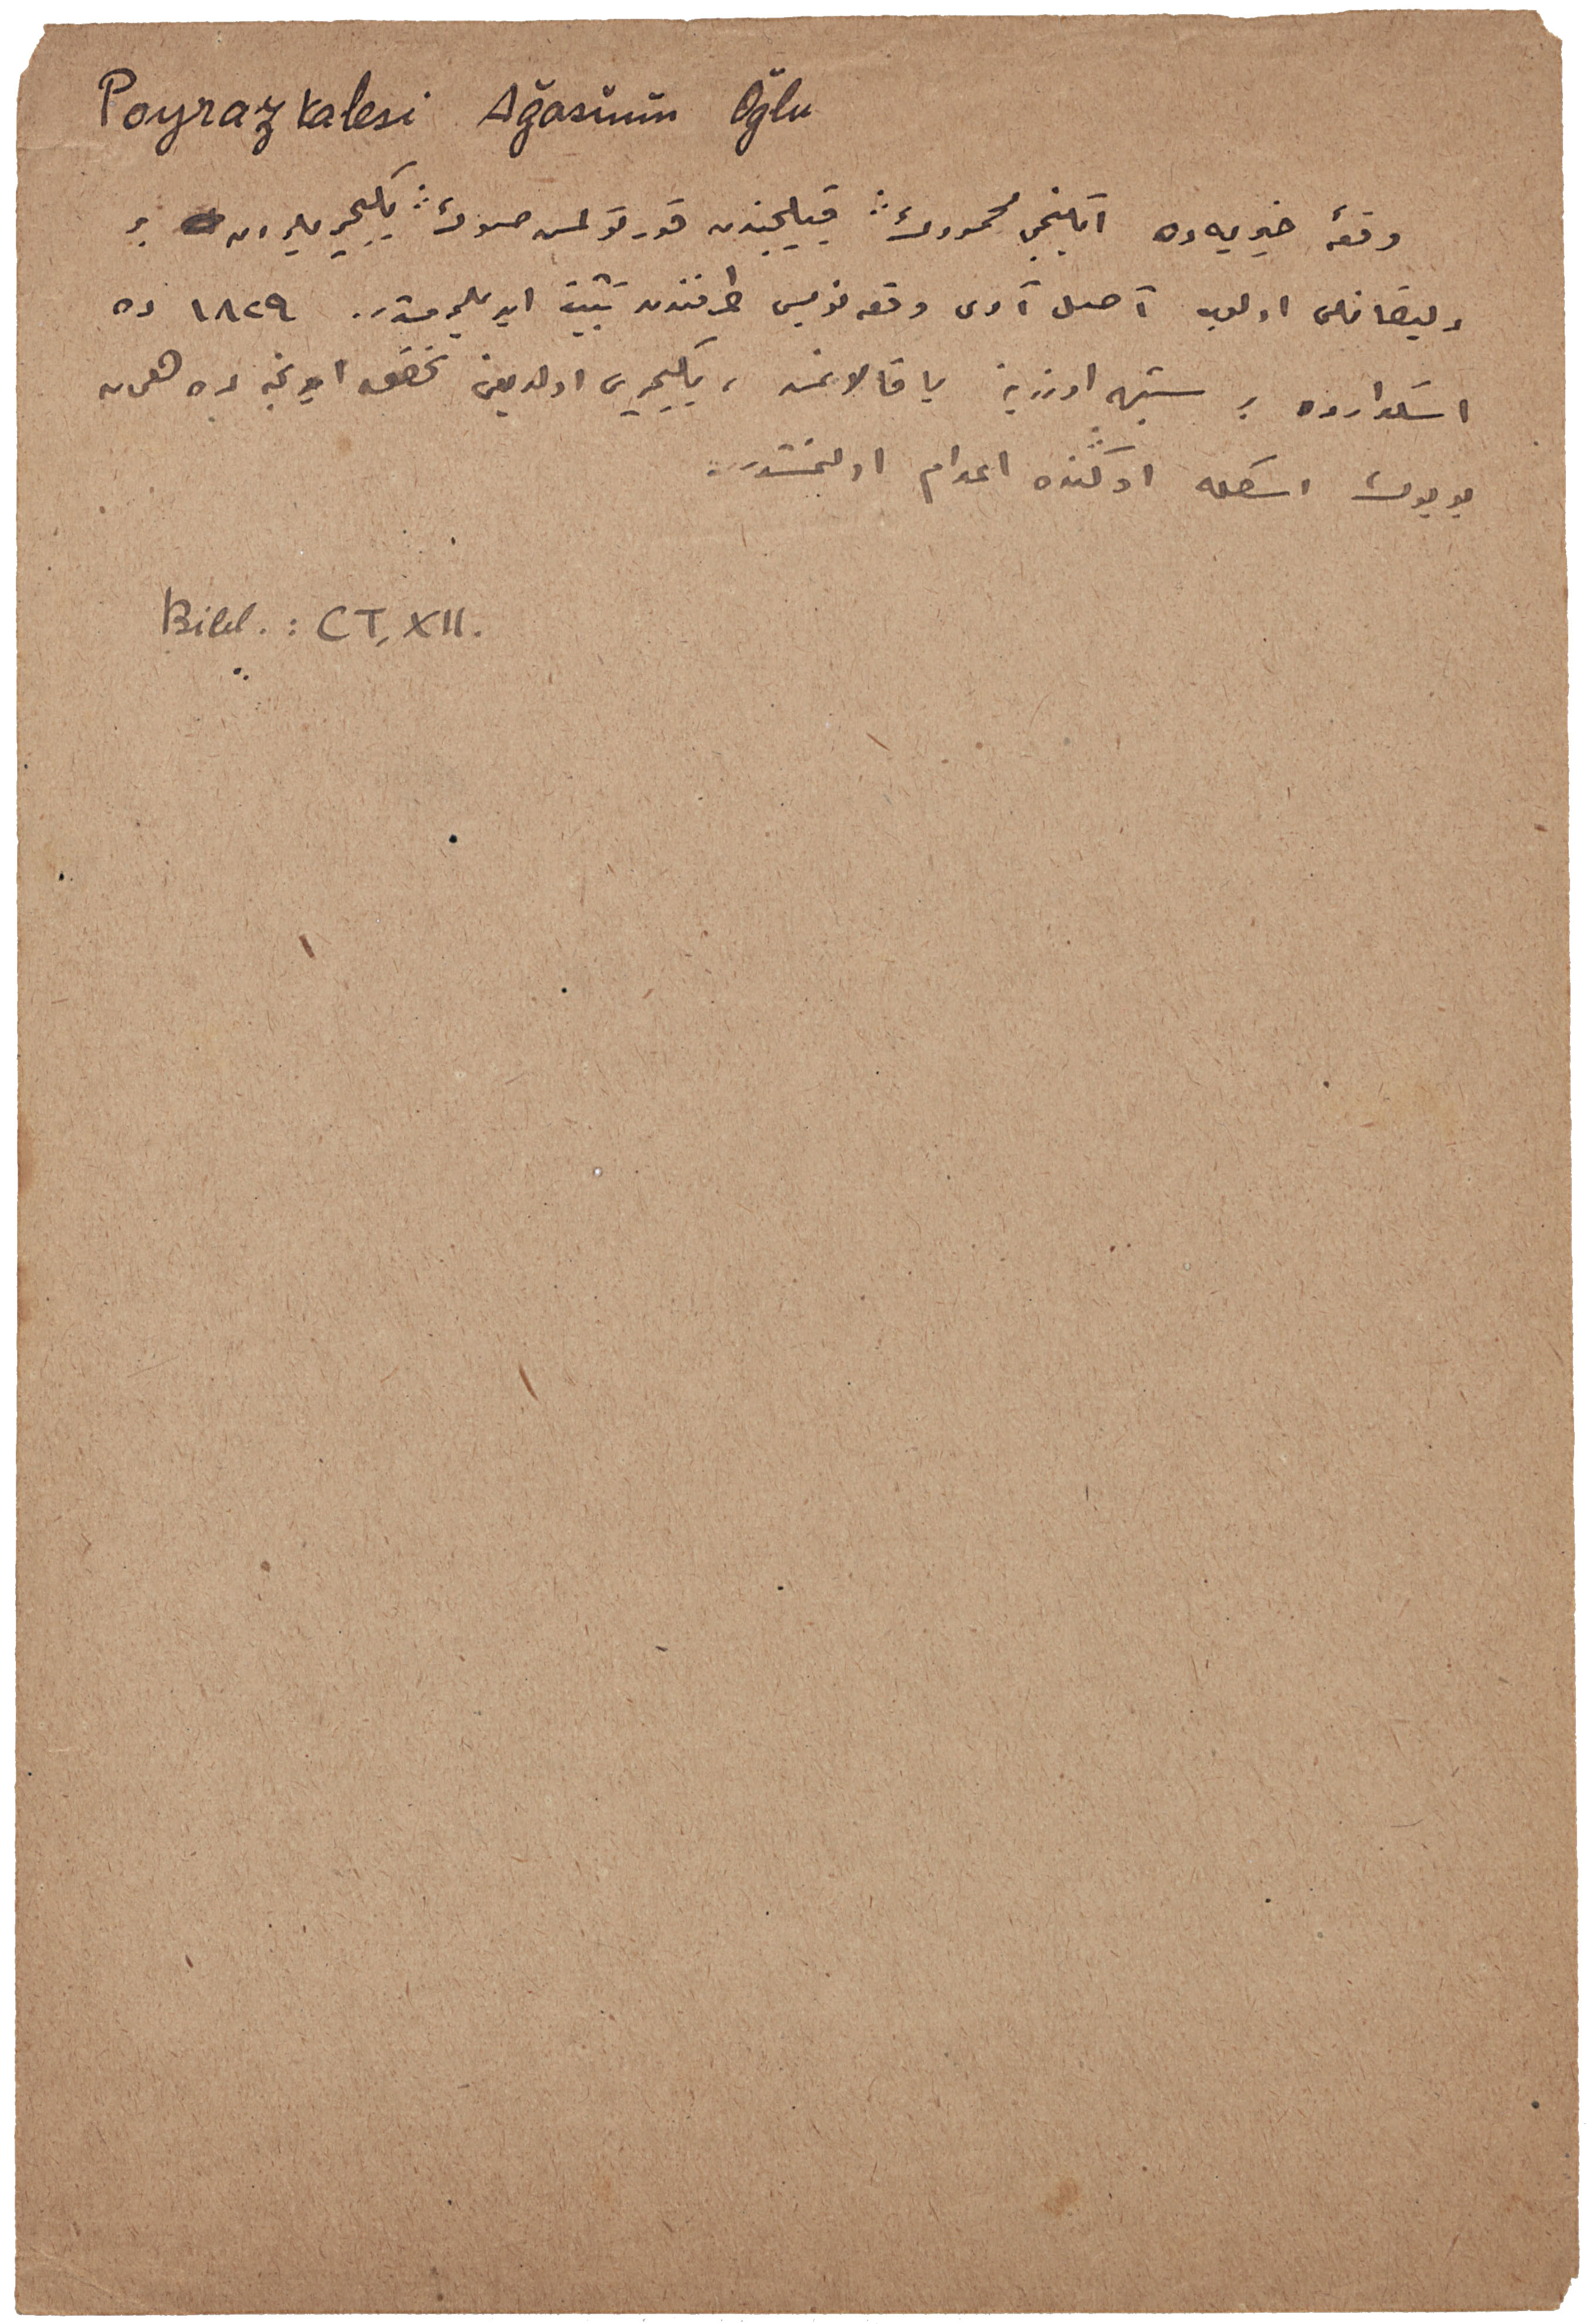 Poyraz kalesi Ağasının Oğlu
وقعهٔ خیریه ده ایکنجی محمودڭ قیلیجندن قورتولمش صوڭ یکیچریلردن بر
دلیقانلی اولوب آصل آدی وقعه نویس طرفندن تثبیت ایدیلمه مشدر. ١٨٢٩ ده
اسکدارده بر شبهه اوزرینه یاقالانمش ، یکیچری اولدیغی تحقق ایدنجه ده همان
بویوك اسکله اوڭنده اعدام اولنمشدر.
Bibl. : CT, XII.